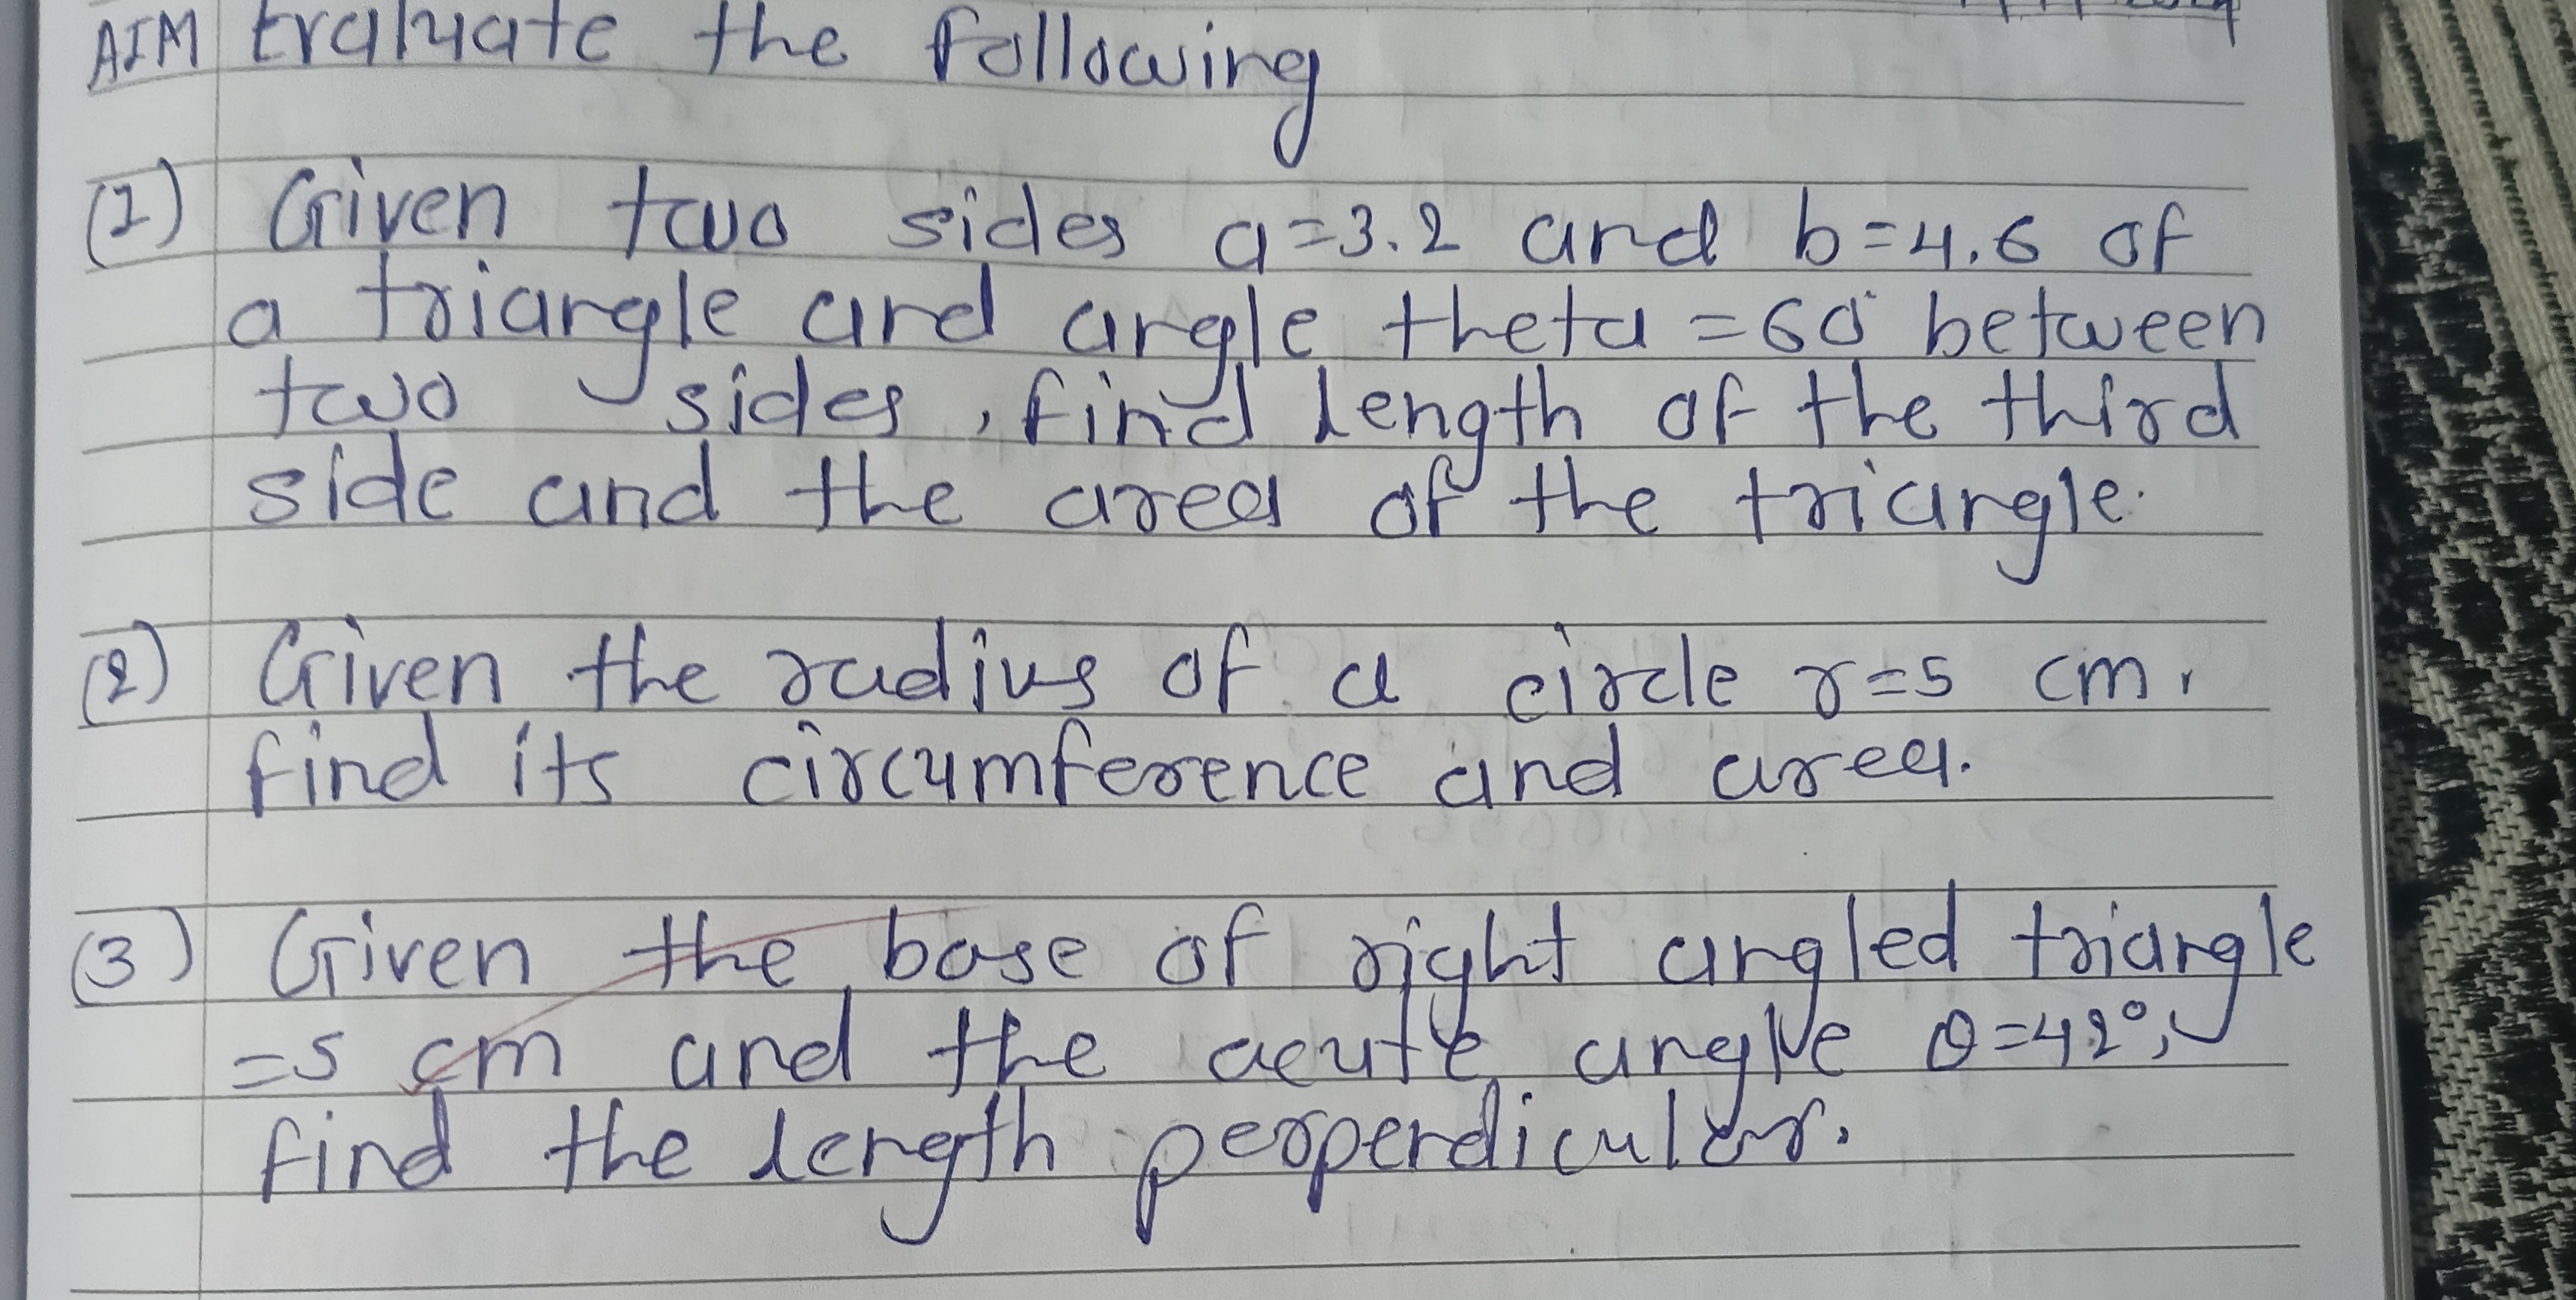 AIM Evaluate the following
(1) Given two sides a=3.2 and b=4.6 of
a triangle and angle theta =60° between
two sides, find length of the third
side and the area of the triangle.
(2) Given the radius of a circle r=5 cm.
find its circumference and area.
(3) Given the base of right angled triangle
=5 cm and the acute angle θ=42°,
find the length perpendicular.